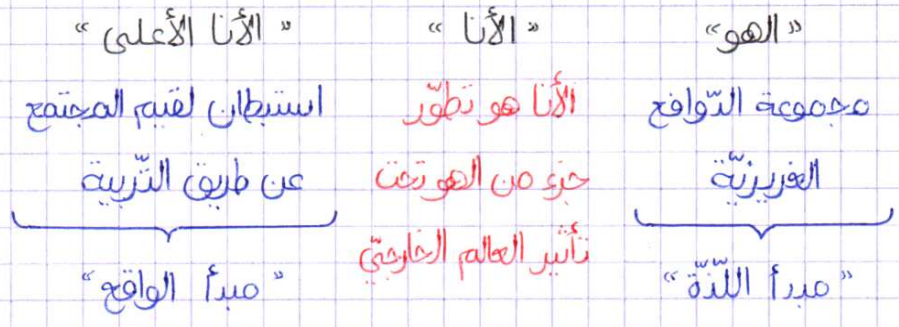 "الهو"
مجموعة الدّوافع
الغريزيّة
"مبدأ اللّذّة"
"الأنا"
الأنا هو تطوّر
جزء من الهو تحت
تأثير العالم الخارجيّ
"الأنا الأعلى"
استبطان لقيم المجتمع
عن طريق التّربية
"مبدأ الواقع"